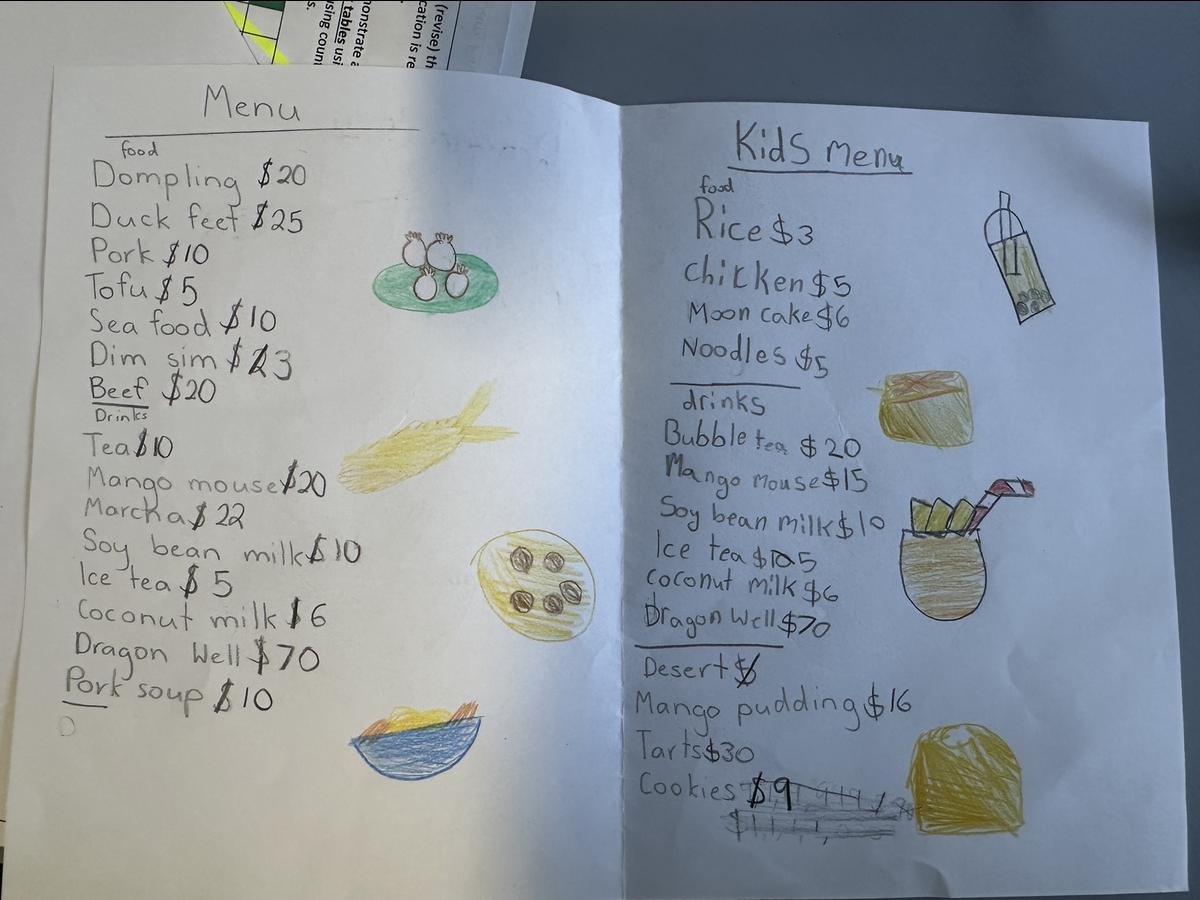 (revise) th
cation is re
monstrate a
tables usi
sing coun
s.
Menu
food
Dompling $20
Duck feet $25
Pork $10
Tofu $5
Sea food $10
Dim sim $23
Beef $20
Drinks
Tea $10
Mango mouse $20
Marcha $22
Soy bean milk $10
Ice tea $5
Coconut milk $6
Dragon Well $70
Pork soup $10
D
Kids Menu
food
Rice $3
chicken $5
Moon cake $6
Noodles $5
drinks
Bubble tea $20
Mango Mouse $15
Soy bean milk $10
Ice tea $5
coconut milk $6
Dragon Well $70
Desert
Mango pudding $16
Tarts $30
Cookies $9